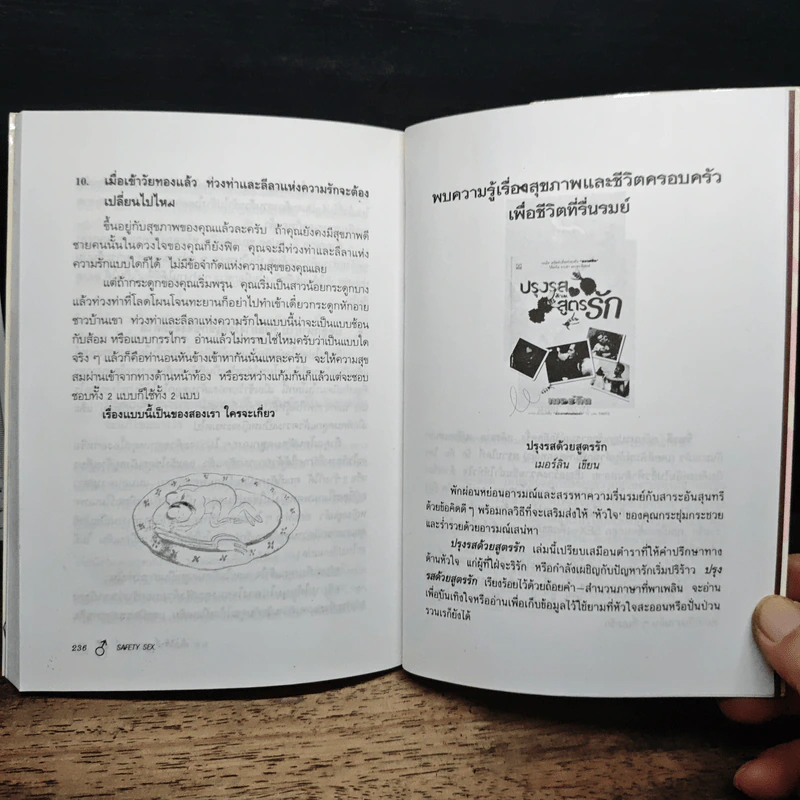 10. เมื่อเข้าวัยทองแล้ว ท่วงท่าและลีลาแห่งความรักจะต้อง
เปลี่ยนไปไหม
ขึ้นอยู่กับสุขภาพของคุณแล้วละครับ ถ้าคุณยังคงมีสุขภาพดี
ชายคนนั้นในดวงใจของคุณก็ยังฟิต คุณจะมีท่วงท่าและลีลาแห่ง
ความรักแบบใดก็ได้ ไม่มีข้อจำกัดแห่งความสุขของคุณเลย
แต่ถ้ากระดูกของคุณเริ่มพรุน คุณเริ่มเป็นสาวน้อยกระดูกบาง
แล้วท่วงท่าที่โลดโผนโจนทะยานก็อย่าไปทำเข้าเดี๋ยวกระดูกหักอาย
ชาวบ้านเขา ท่วงท่าและลีลาแห่งความรักในแบบนี้น่าจะเป็นแบบช้อน
กับส้อม หรือแบบกรรไกร อ่านแล้วไม่ทราบใช่ไหมครับว่าเป็นแบบใด
จริง ๆ แล้วก็คือท่านอนหันข้างเข้าหากันนั่นแหละครับ จะให้ความสุข
สมผ่านเข้าจากทางด้านหน้าท้อง หรือระหว่างแก้มก้นก็แล้วแต่จะชอบ
ชอบทั้ง 2 แบบก็ใช้ทั้ง 2 แบบ
เรื่องแบบนี้เป็นของสองเรา ใครจะเกี่ยว
236 SAFETY SEX
พบความรู้เรื่องสุขภาพและชีวิตครอบครัว
เพื่อชีวิตที่รื่นรมย์
ปรุงรส
ด้วย
สูตรรัก
เมอร์ลิน
ปรุงรสด้วยสูตรรัก
เมอร์ลิน เขียน
พักผ่อนหย่อนอารมณ์และสรรหาความรื่นรมย์กับสาระอันสุนทรี
ด้วยข้อคิดดี ๆ พร้อมกลวิธีที่จะเสริมส่งให้ 'หัวใจ' ของคุณกระชุ่มกระชวย
และร่ำรวยด้วยอารมณ์เสน่หา
ปรุงรสด้วยสูตรรัก เล่มนี้เปรียบเสมือนตำราที่ให้คำปรึกษาทาง
ด้านหัวใจ แก่ผู้ที่ใฝ่จะริรัก หรือกำลังเผชิญกับปัญหารักเริ่มปริร้าว ปรุง
รสด้วยสูตรรัก เรียงร้อยไว้ด้วยถ้อยคำ-สำนวนภาษาที่พาเพลิน จะอ่าน
เพื่อบันเทิงใจหรืออ่านเพื่อเก็บข้อมูลไว้ใช้ยามที่หัวใจสะออนหรือปั่นป่วน
รวนเรก็ยังได้